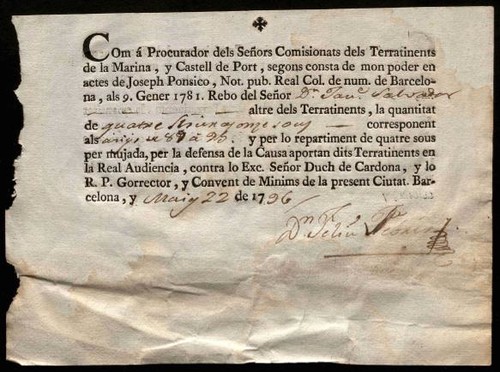 Com á Procurador dels Señors Comisionats dels Terratinents
de la Marina, y Castell de Port, segons consta de mon poder en
actes de Joseph Ponsico, Not. pub. Real Col. de num. de Barcelo-
na, als 9. Gener 1781. Rebo del Señor Dn. Salvador
altre dels Terratinents, la quantitat
de quatre sous corresponent
als anys de 87 á 95. y per lo repartiment de quatre sous
per mujada, per la defensa de la Causa aportan dits Terratinents en
la Real Audiencia, contra lo Exc. Señor Duch de Cardona, y lo
R. P. Gorrector, y Convent de Minims de la present Ciutat. Bar-
celona, y Maig 22 de 1796
Dn. Feliu